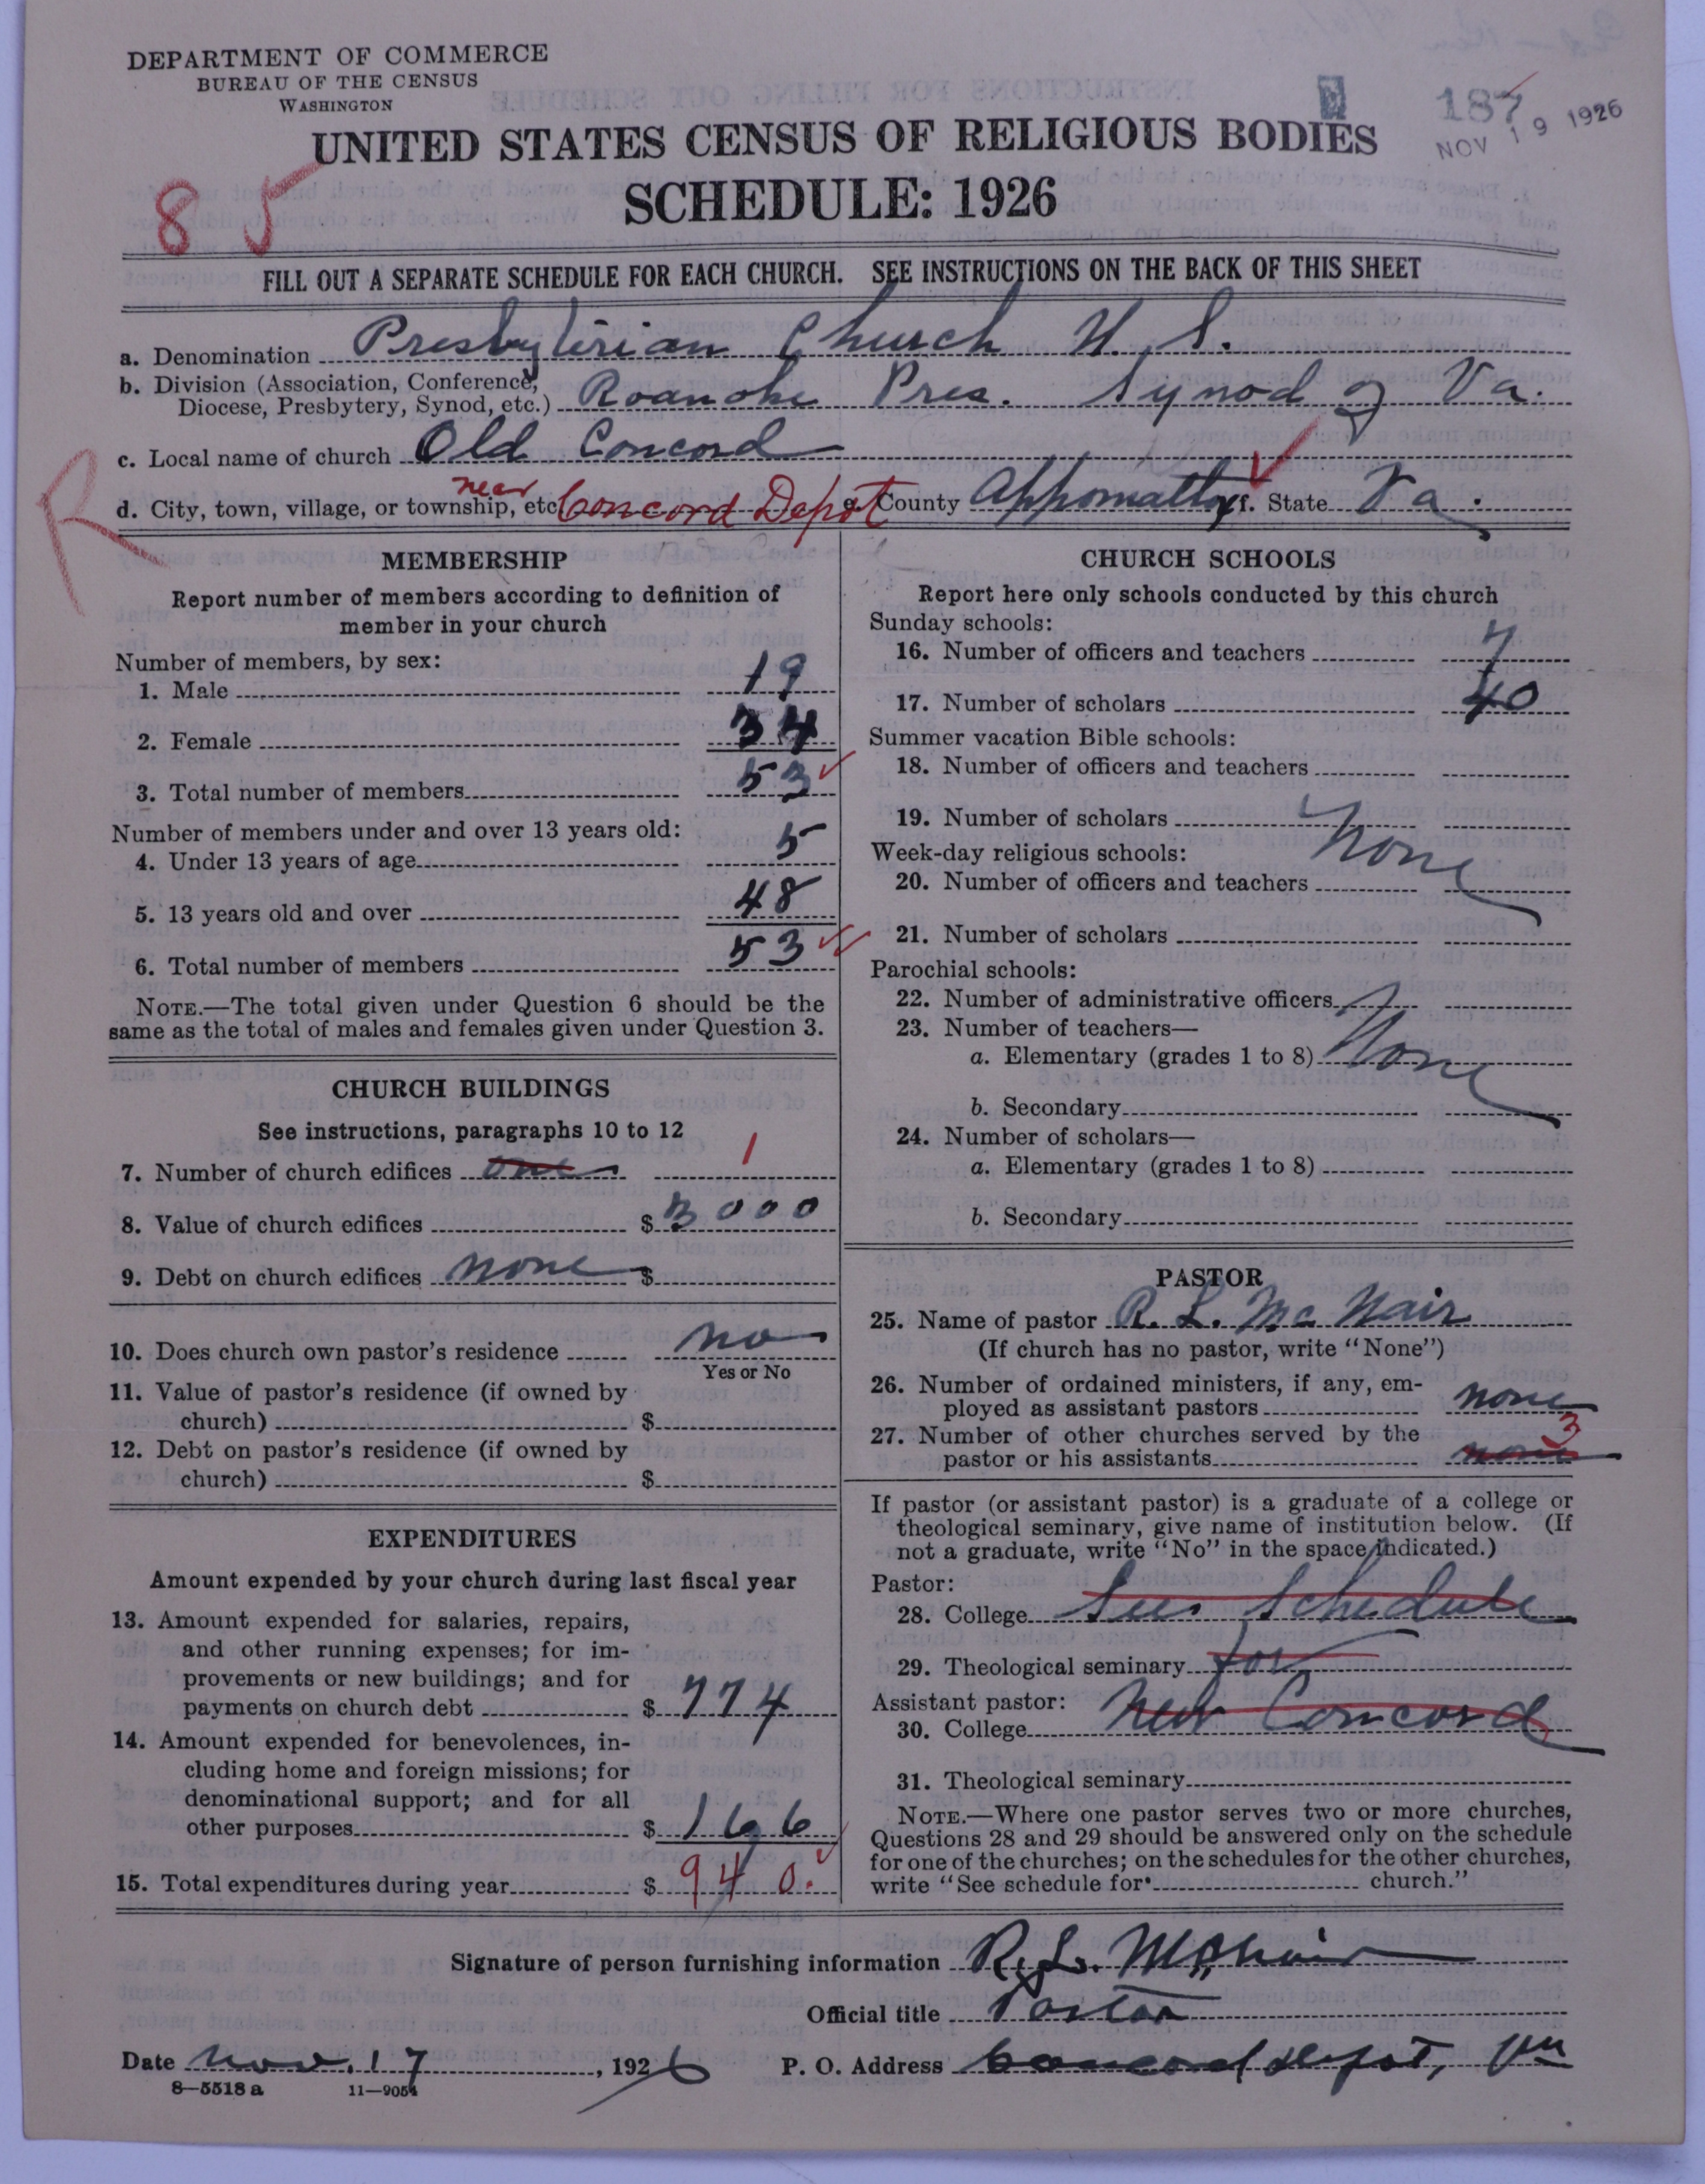 DEPARTMENT OF COMMERCE
BUREAU OF THE CENSUS
WASHINGTON
187
NOV 19 1926
UNITED STATES CENSUS OF RELIGIOUS BODIES
SCHEDULE: 1926
85
FILL OUT A SEPARATE SCHEDULE FOR EACH CHURCH. SEE INSTRUCTIONS ON THE BACK OF THIS SHEET
a. Denomination Presbyterian Church U. S.
b. Division (Association, Conference, Diocese, Presbytery, Synod, etc.) Roanoke Pres. Synod of Va.
c. Local name of church Old Concord
R
d. City, town, village, or township, etc. near Concord Depot e. County Appomattox f. State Va.
MEMBERSHIP
Report number of members according to definition of
member in your church
Number of members, by sex:
1. Male 19
2. Female 34
3. Total number of members 53
Number of members under and over 13 years old:
4. Under 13 years of age 5
5. 13 years old and over 48
6. Total number of members 53
NOTE.—The total given under Question 6 should be the
same as the total of males and females given under Question 3.
CHURCH BUILDINGS
See instructions, paragraphs 10 to 12
7. Number of church edifices one 1
8. Value of church edifices $ 3000
9. Debt on church edifices none $
10. Does church own pastor's residence no
Yes or No
11. Value of pastor's residence (if owned by
church) $
12. Debt on pastor's residence (if owned by
church) $
EXPENDITURES
Amount expended by your church during last fiscal year
13. Amount expended for salaries, repairs,
and other running expenses; for im-
provements or new buildings; and for
payments on church debt $ 774
14. Amount expended for benevolences, in-
cluding home and foreign missions; for
denominational support; and for all
other purposes $ 166
15. Total expenditures during year $ 940.
CHURCH SCHOOLS
Report here only schools conducted by this church
Sunday schools:
16. Number of officers and teachers 7
17. Number of scholars 40
Summer vacation Bible schools:
18. Number of officers and teachers
19. Number of scholars
None
Week-day religious schools:
20. Number of officers and teachers
21. Number of scholars
Parochial schools:
22. Number of administrative officers
23. Number of teachers—
a. Elementary (grades 1 to 8) None
b. Secondary
24. Number of scholars—
a. Elementary (grades 1 to 8)
b. Secondary
PASTOR
25. Name of pastor R. L. McNair
(If church has no pastor, write "None")
26. Number of ordained ministers, if any, em-
ployed as assistant pastors none
27. Number of other churches served by the
pastor or his assistants none 3
If pastor (or assistant pastor) is a graduate of a college or
theological seminary, give name of institution below. (If
not a graduate, write "No" in the space indicated.)
Pastor:
28. College See Schedule
29. Theological seminary for
Assistant pastor:
30. College New Concord
31. Theological seminary
NOTE.—Where one pastor serves two or more churches,
Questions 28 and 29 should be answered only on the schedule
for one of the churches; on the schedules for the other churches,
write "See schedule for church."
Signature of person furnishing information R. L. McNair
Official title Pastor
Date Nov. 17, 1926 P. O. Address Concord Depot, Va
8—5518 a 11—9054